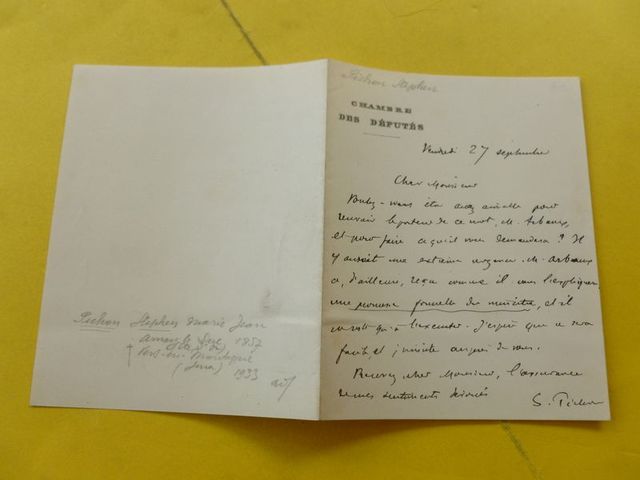 Pichon Stephen
CHAMBRE
DES DÉPUTÉS
Vendredi 27 septembre
Cher Monsieur
Voulez-vous être assez aimable pour
recevoir le porteur de ce mot, M. Arbaux,
et pour faire ce qu'il vous demandera? Il
y aurait une extrême urgence. M. Arbaux
a, d'ailleurs, reçu comme il vous l'expliquera
une promesse formelle du ministre, et il
ne reste qu'à l'exécuter. J'espère que ce sera
fait, et j'insiste auprès de vous.
Recevez, cher Monsieur, l'assurance
de mes sentiments dévoués
S. Pichon
Pichon Stephen Marie Jean
Arnay le Duc 1857
† Vers-en-Montagne
(Jura) 1933